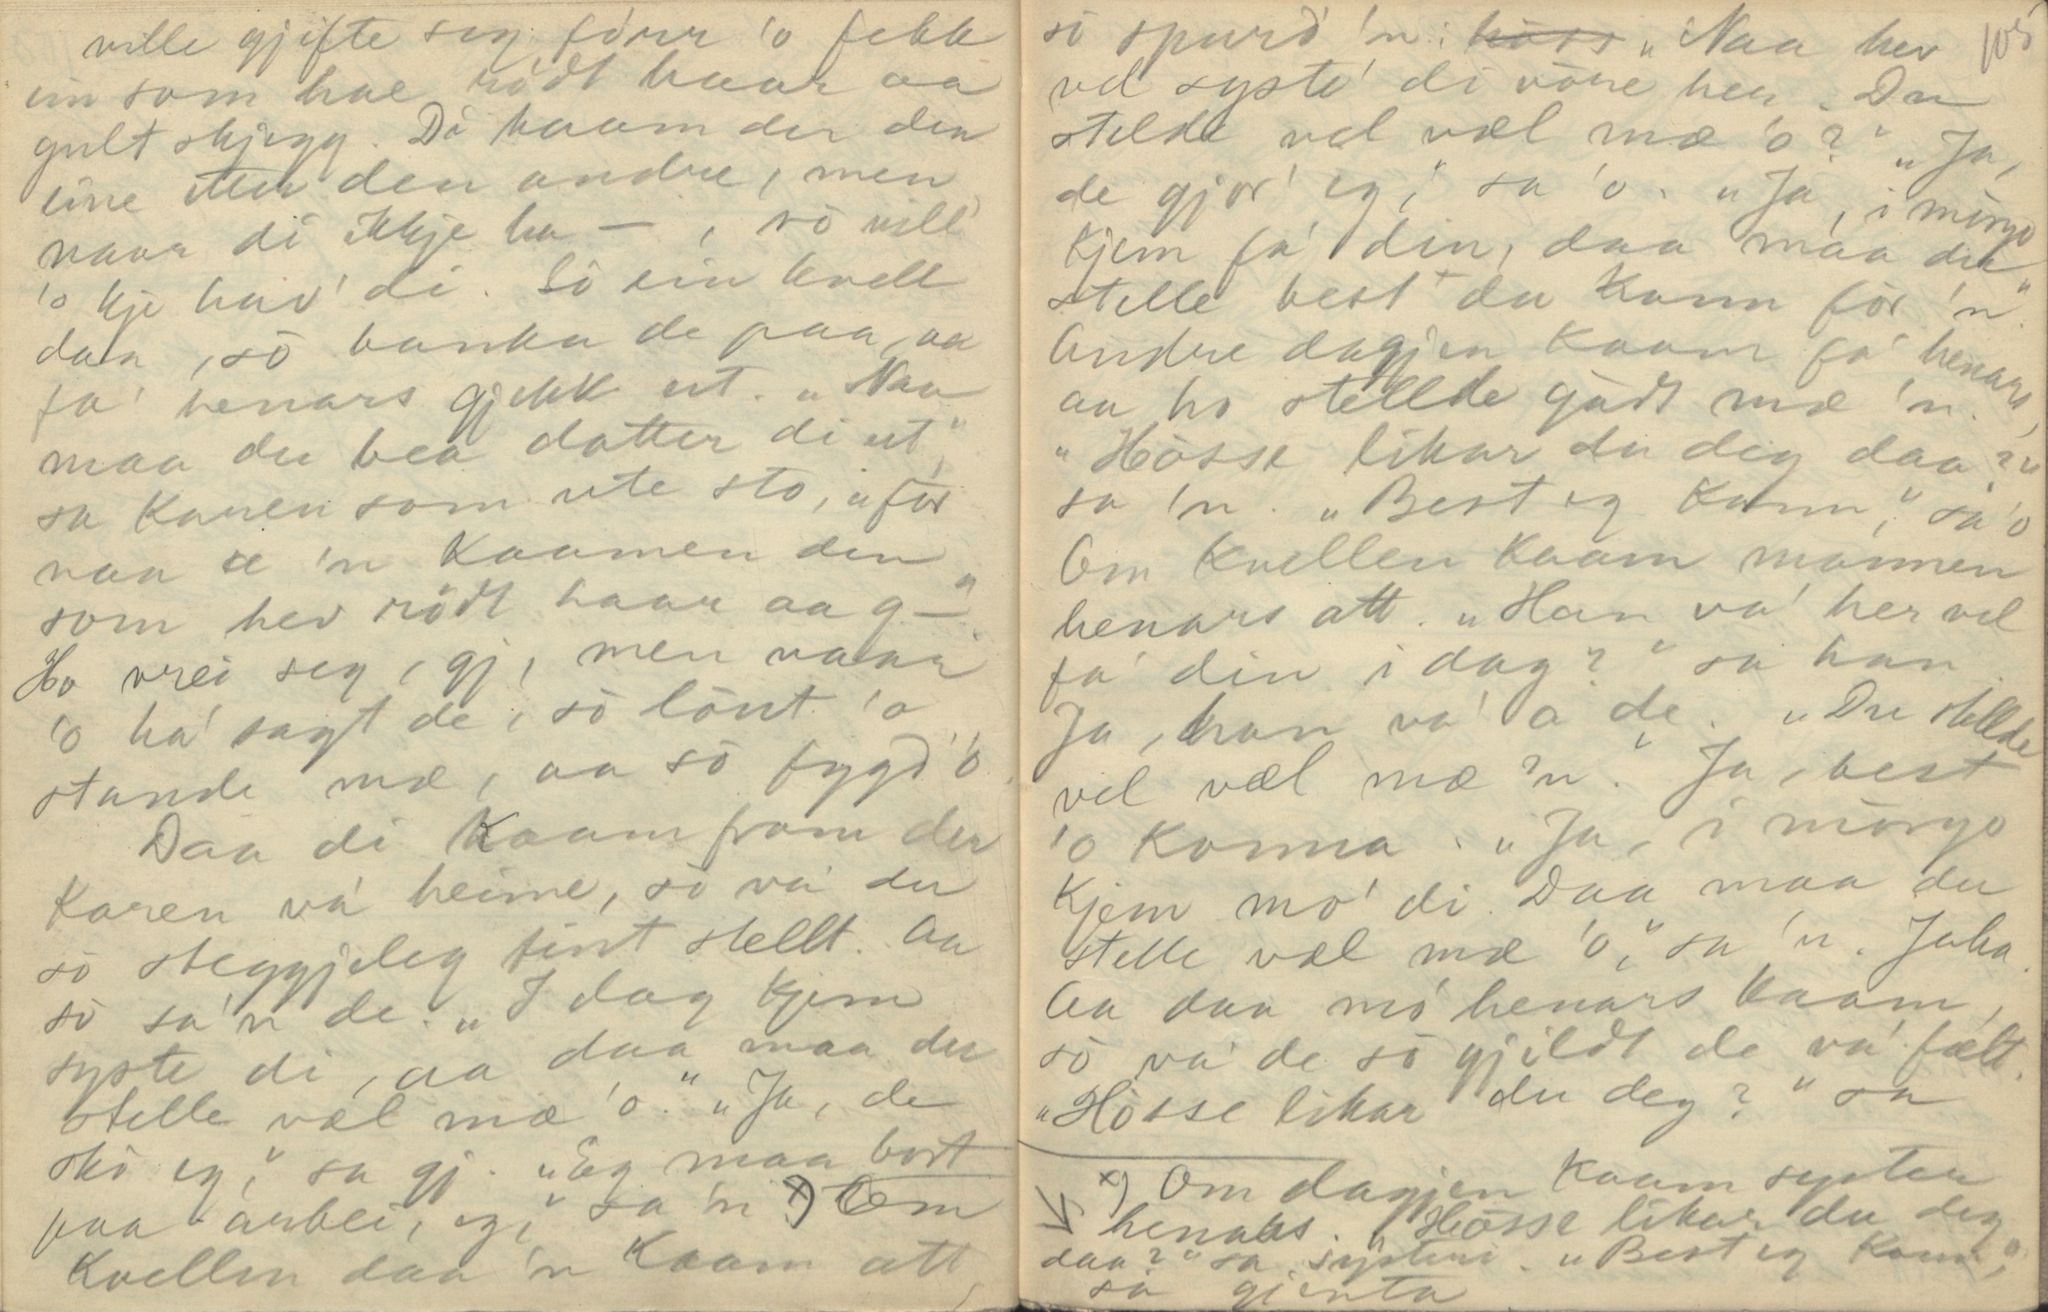 ville gjifte seg förr 'o fekk
ein som hae rödt haar aa
gult skjegg. Dö kaam der den
eine etter den andre, men
naar di ikkje ha – , sö vill
'o kje hav' di. Sö ein kvell
daa, sö banka de paa, aa
fa' henars gjekk ut. „Naa
maa du bea datter di ut,"
sa Karen som ute sto, „før
naa æ 'n kaamen den
som hev rödt haar aa g–"
Ho vrei seg, gj, men naar
'o ha' sagt de, sö lönt 'o
stande mæ, aa sö fygd' 'o.
Daa di kaam fram der
Karen va' heime, sö va' der
sö steggjeleg fint stellt. Aa
sö sa'n de. „I dag kjem
syste di, aa daa maa du
stelle væl mæ 'o." „Ja, de
skö eg," sa gj. „Eg maa bort
paa arbei, eg," sa 'n x) Om
Kvellen daa 'n kaam att,
105
sö spurd' 'n: höss „Naa hev
vel syste' di vöre her. Du
stelde vel væl mæ 'o?" „Ja,
de gjor' eg," sa 'o. „Ja, i mörgo
kjem fa' din, daa maa du
stelle best du kann för 'n."
Andre dagjen kaam fa' henars,
aa ho stellde godt mæ 'n.
„Hösse likar du deg daa?"
sa 'n. „Best eg kann," sa 'o
Om kvellen kaam mannen
henars att. „Han va' her vel
fa' din i dag?" sa han.
Ja, han va' o de. „Du stellde
vel væl mæ 'n." Ja, best
'o konna. „Ja, i mörgo
kjem mo' di. Daa maa du
stelle væl mæ 'o," sa 'n. Jaha.
Aa daa mo' henars kaam,
sö va' de sö gjildt de va' fælt.
„Hösse likar du deg?" sa
x) Om dagjen kaam syster
henars. „Hösse likar du deg
daa?" sa systeri. „Best eg kann,"
sa gjenta